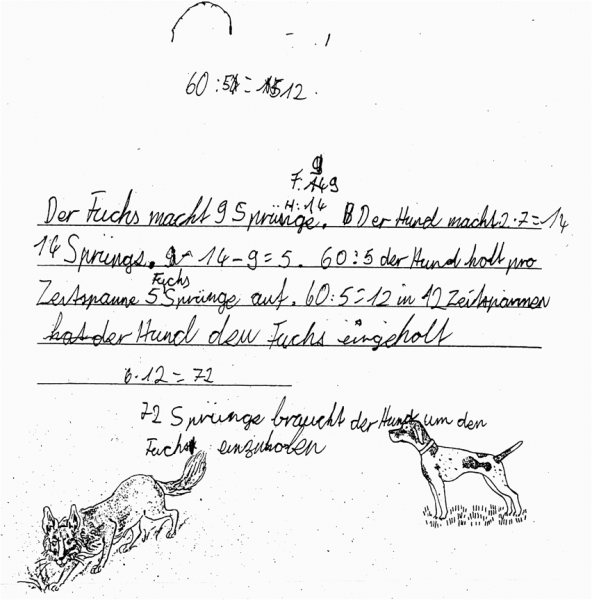 60:5 = 12.
9
F: 9
H: 14
Der Fuchs macht 9 Sprünge. Der Hund macht 2·7=14
14 Sprüngs. 14-9=5. 60:5 der Hund holt pro
Fuchs
Zeitspanne 5 Sprünge auf. 60:5=12 in 12 Zeitspannen
hat der Hund den Fuchs eingeholt
6·12=72
72 Sprünge braucht der Hund um den
Fuchs einzuholen